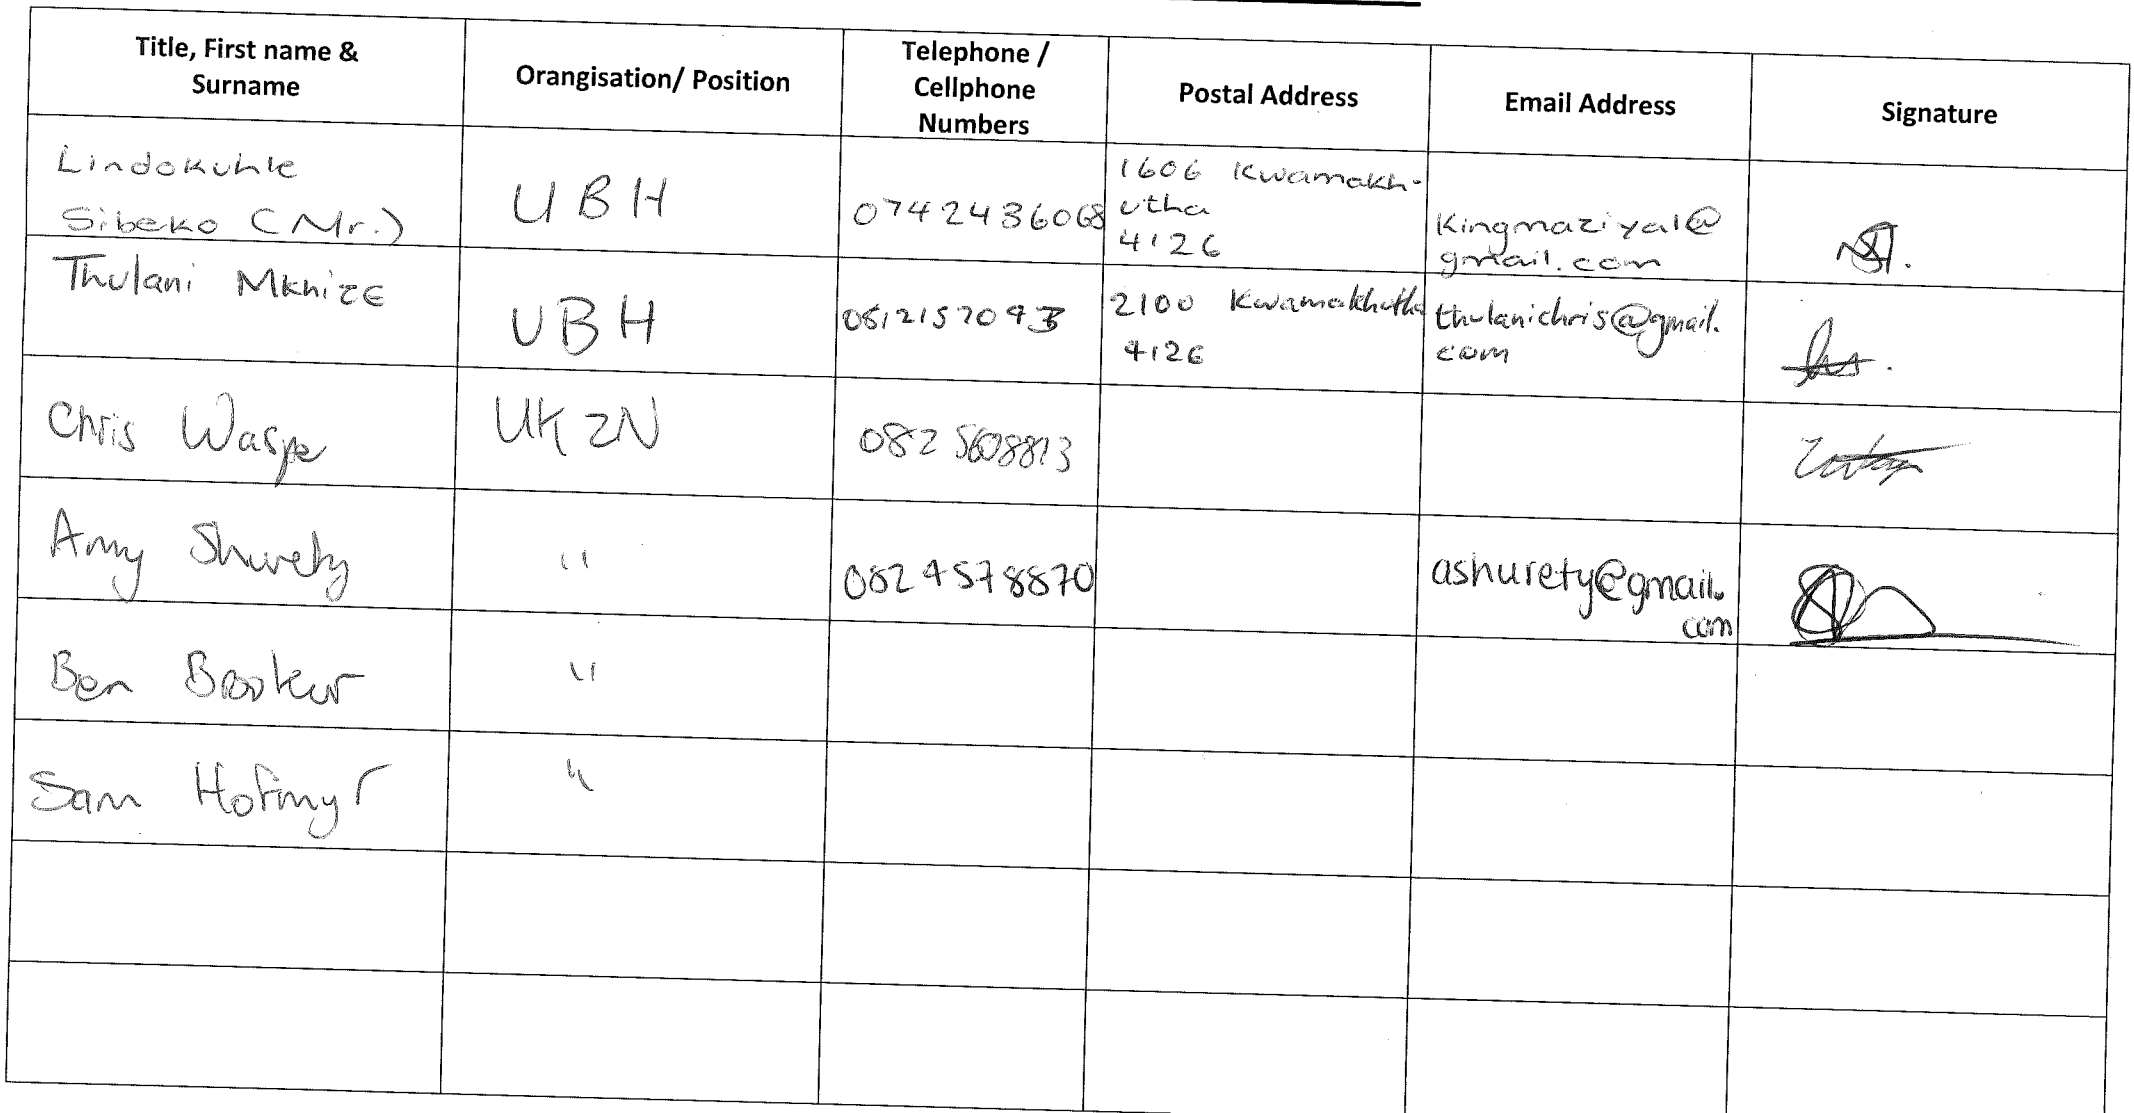 Title, First name &
Surname
Orangisation/ Position
Telephone /
Cellphone
Numbers
Postal Address
Email Address
Signature
Lindokuhle
Sibeko (Mr.)
UBH
0742436068
1606 Kwamakh-
utha
4126
Kingmaziya1@
gmail.com
Thulani Mkhize
UBH
2100 Kwamakhutha
4126
thulanichris@gmail.
com
Chris
UKZN
Amy Shurety
"
0824578870
ashurety@gmail.
com
Ben
"
Sam Hofmyr
"